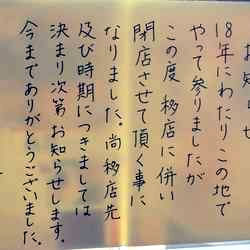 お知らせ
18年にわたりこの地で
やって参りましたが
この度移店に併い
閉店させて頂く事に
なりました。尚移店先
及び時期につきましては
決まり次第お知らせします。
今までありがとうございました。